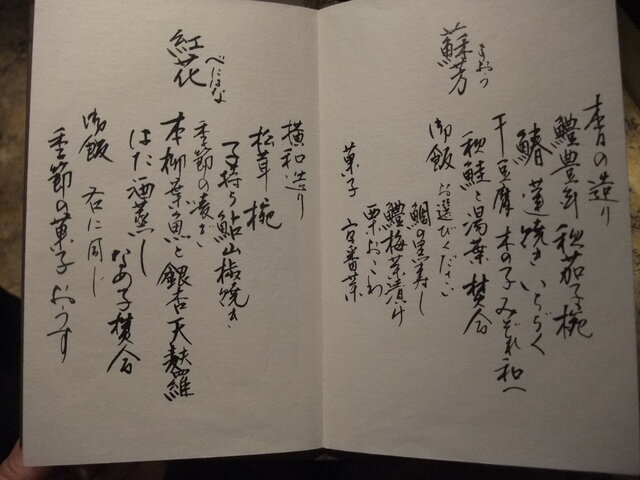 蘇芳
すおう
本日の造り
鱧豊年 秋茄子椀
鰆 蓮焼き いちぢく
干豆腐 木の子みぞれ和へ
秋鮭と湯葉 焚合
御飯 お選びください
鯛の黒寿し
鱧梅茶漬け
栗おこわ
菓子 京番茶
紅花
べにはな
横和造り
松茸椀
子持ち鮎山椒焼き
季節の凌ぎ
本柳葉魚と銀杏天麩羅
はた酒蒸し なめ子焚合
御飯 右に同じ
季節の菓子 おうす